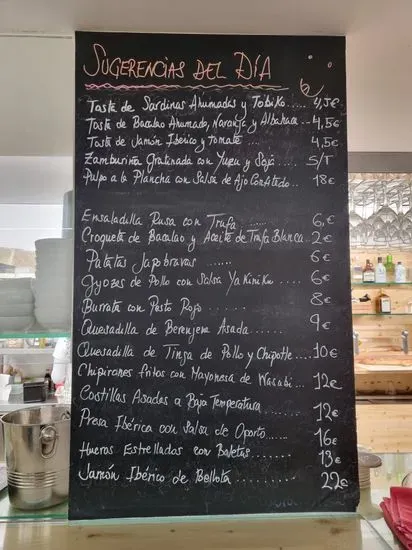 SUGERENCIAS DEL DÍA
Tosta de Sardinas Ahumadas y Tobiko..... 4,5€
Tosta de Bacalao Ahumado, Naranja y Albahaca.. 4,5€
Tosta de Jamón Ibérico y Tomate.... 4,5€
Zamburiña Gratinada con Yuzu y Soja..... S/T
Pulpo a la Plancha con Salsa de Ajo Confitado.. 18€
Ensaladilla Rusa con Trufa ....... 6,€
Croqueta de Bacalao y Aceite de Trufa Blanca.. 2€
Patatas Japobravas ............ 6€
Gyozas de Pollo con Salsa Yakiniku .... 6€
Burrata con Pesto Rojo........... 8€
Quesadilla de Berenjena Asada....... 9€
Quesadilla de Tinga de Pollo y Chipotle.... 10€
Chipirones fritos con Mayonesa de Wasabi.. 12€
Costillas Asadas a Baja Temperatura ........ 12€
Presa Ibérica con Salsa de Oporto...... 16€
Huevos Estrellados con Boletus..... 13€
Jamón Ibérico de Bellota........ 22€